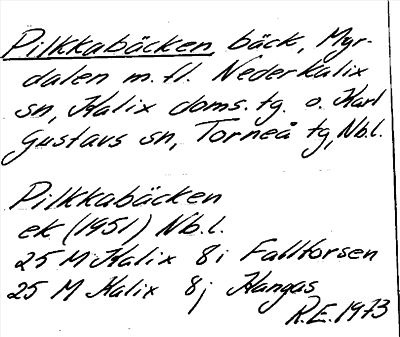 Pilkkabäcken, bäck, Myr-
dalen m.fl. Nederkalix
sn, Kalix doms.tg. o. Karl
Gustavs sn, Torneå tg, Nb.l.
Pilkkabäcken
ek (1951) Nb.l.
25 M Kalix 8i Falltorsen
25 M Kalix 8j Kangas
R.E. 1973